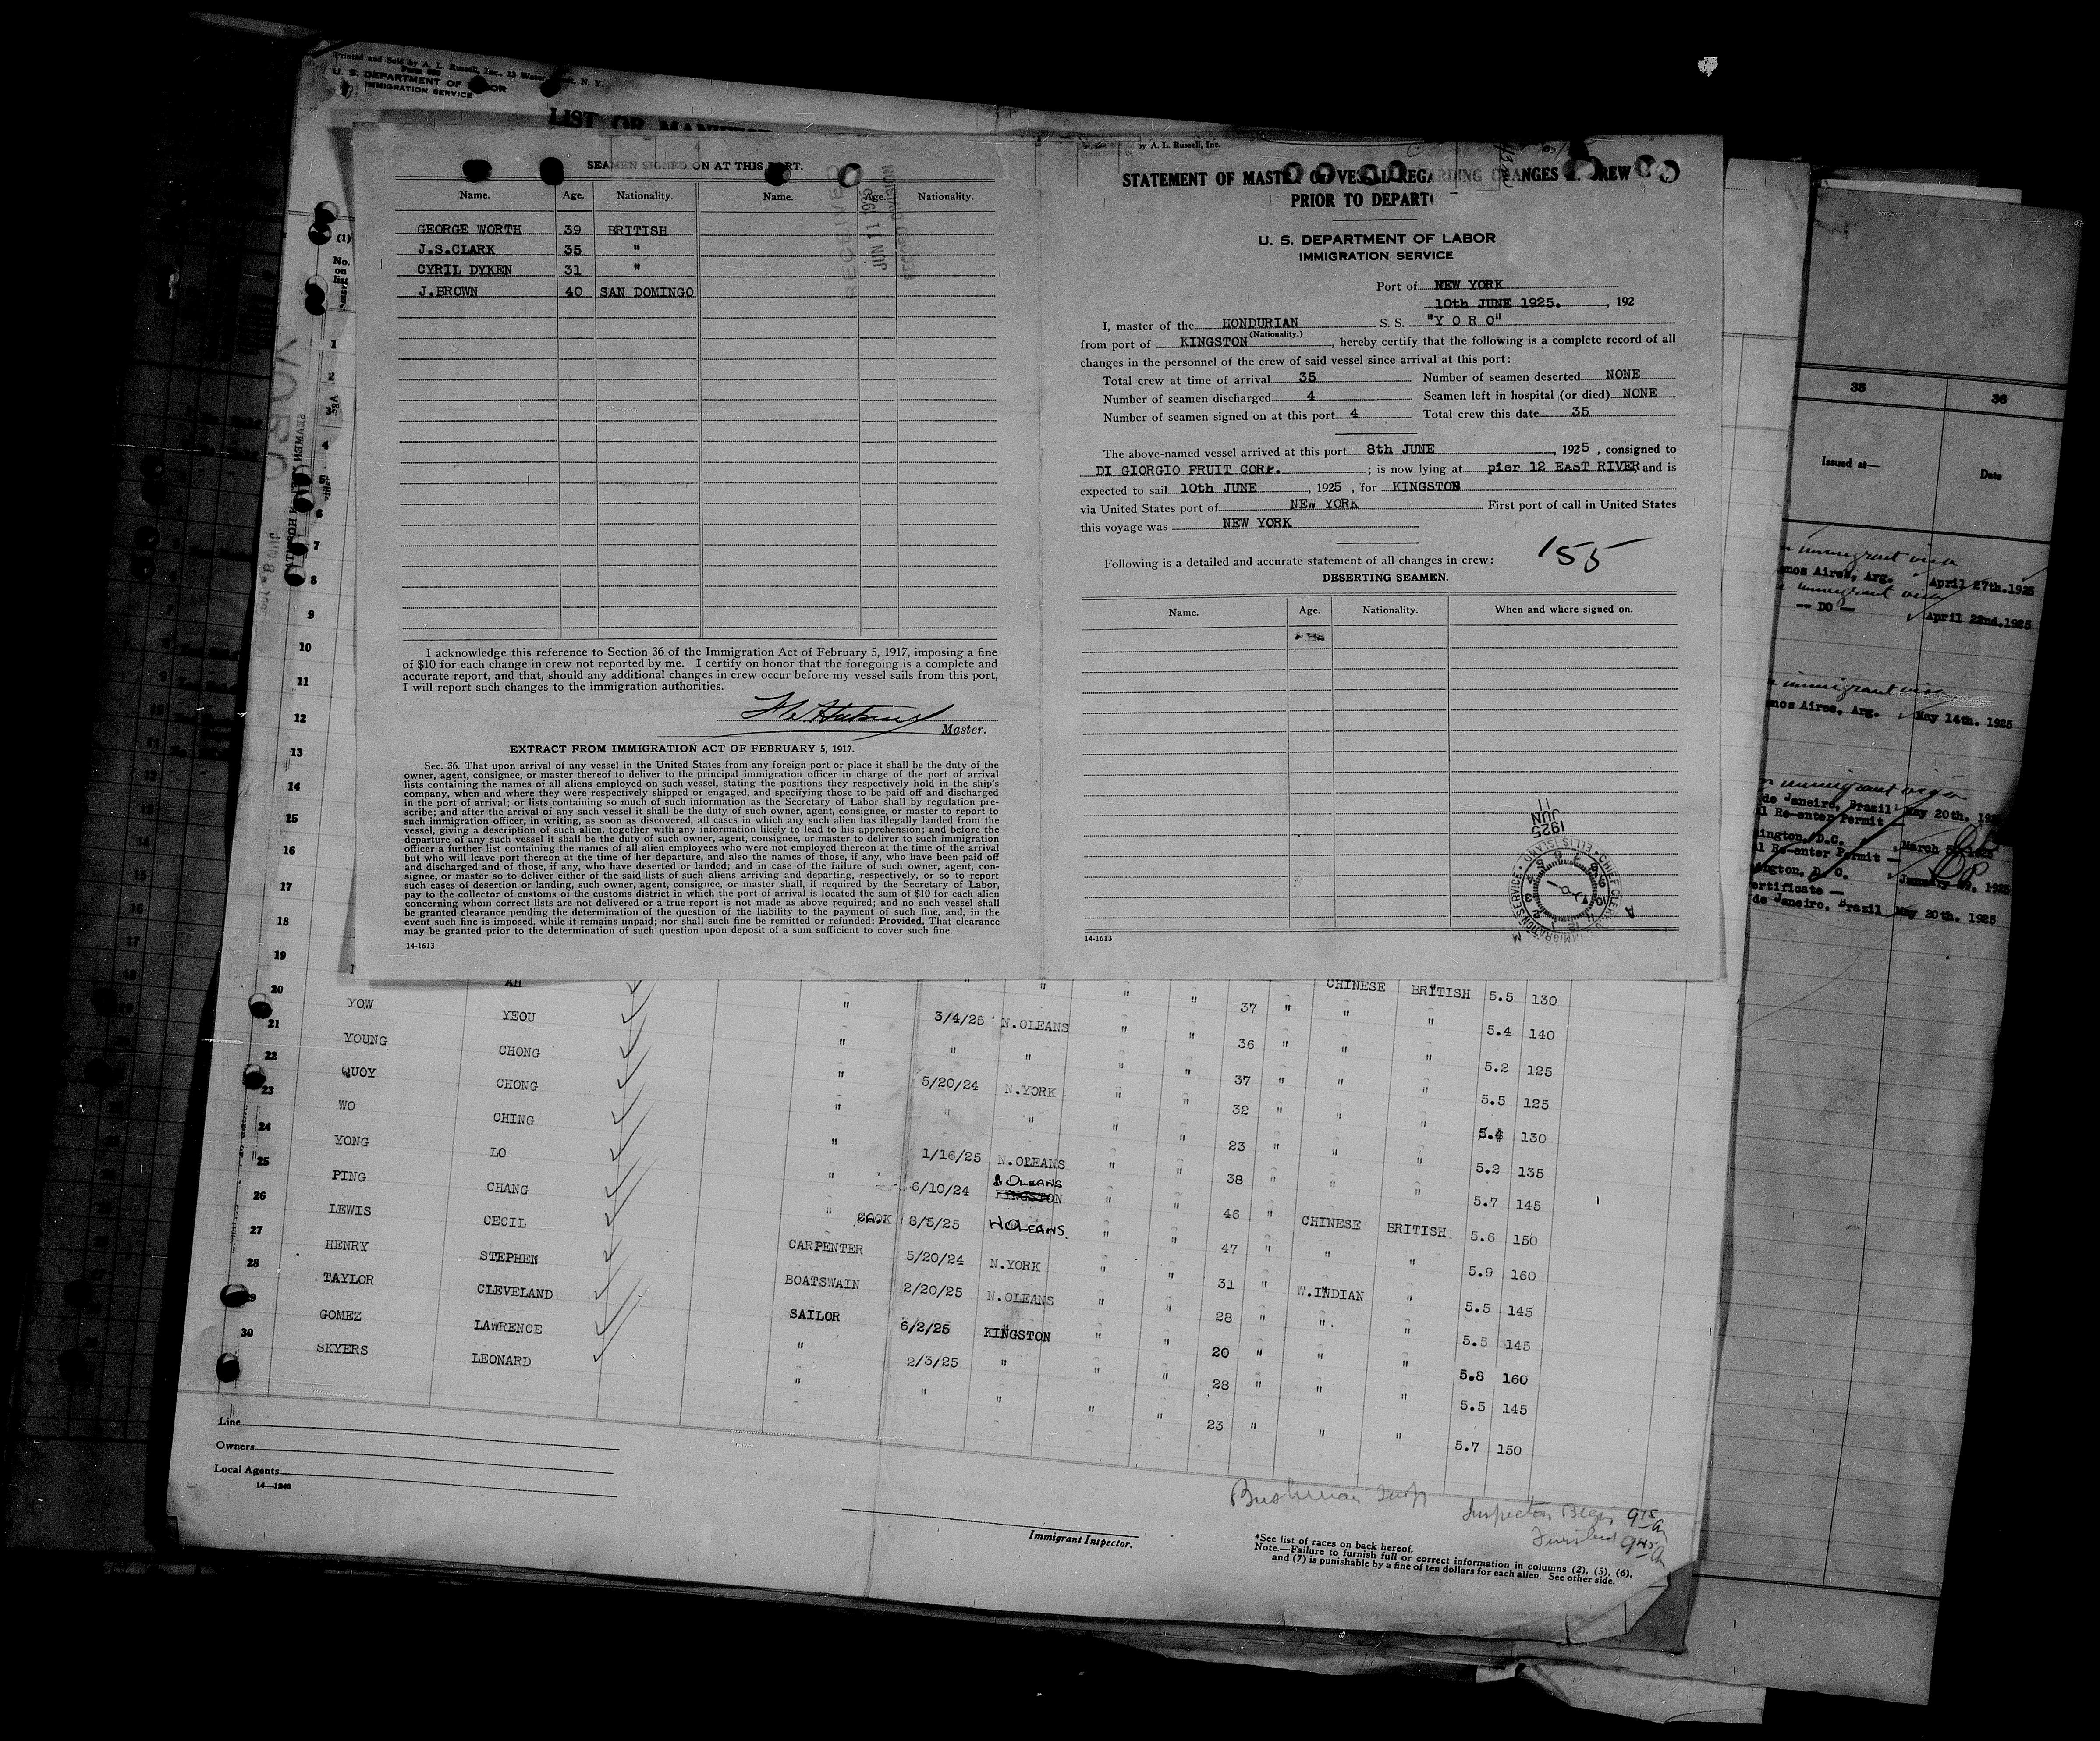 Printed and Sold by A. L. Russell, Inc., 13 Water N. Y.
U. S. DEPARTMENT OF LABOR
IMMIGRATION SERVICE
LIST OR MANIFEST
SEAMEN SIGNED ON AT THIS PORT.
Name. Age. Nationality. Name. Age. Nationality.
GEORGE WORTH 39 BRITISH
J.S.CLARK 35 "
CYRIL DYKEN 31 "
J.BROWN 40 SAN DOMINGO
RECEIVED
JUN 11 1925
RECORD DIVISION
I acknowledge this reference to Section 36 of the Immigration Act of February 5, 1917, imposing a fine
of $10 for each change in crew not reported by me. I certify on honor that the foregoing is a complete and
accurate report, and that, should any additional changes in crew occur before my vessel sails from this port,
I will report such changes to the immigration authorities.
Master.
EXTRACT FROM IMMIGRATION ACT OF FEBRUARY 5, 1917.
Sec. 36. That upon arrival of any vessel in the United States from any foreign port or place it shall be the duty of the
owner, agent, consignee, or master thereof to deliver to the principal immigration officer in charge of the port of arrival
lists containing the names of all aliens employed on such vessel, stating the positions they respectively hold in the ship's
company, when and where they were respectively shipped or engaged, and specifying those to be paid off and discharged
in the port of arrival; or lists containing so much of such information as the Secretary of Labor shall by regulation pre-
scribe; and after the arrival of any such vessel it shall be the duty of such owner, agent, consignee, or master to report to
such immigration officer, in writing, as soon as discovered, all cases in which any such alien has illegally landed from the
vessel, giving a description of such alien, together with any information likely to lead to his apprehension; and before the
departure of any such vessel it shall be the duty of such owner, agent, consignee, or master to deliver to such immigration
officer a further list containing the names of all alien employees who were not employed thereon at the time of the arrival
but who will leave port thereon at the time of her departure, and also the names of those, if any, who have been paid off
and discharged and of those, if any, who have deserted or landed; and in case of the failure of such owner, agent, con-
signee, or master so to deliver either of the said lists of such aliens arriving and departing, respectively, or so to report
such cases of desertion or landing, such owner, agent, consignee, or master shall, if required by the Secretary of Labor,
pay to the collector of customs of the customs district in which the port of arrival is located the sum of $10 for each alien
concerning whom correct lists are not delivered or a true report is not made as above required; and no such vessel shall
be granted clearance pending the determination of the question of the liability to the payment of such fine, and, in the
event such fine is imposed, while it remains unpaid; nor shall such fine be remitted or refunded: Provided, That clearance
may be granted prior to the determination of such question upon deposit of a sum sufficient to cover such fine.
14-1613
by A. L. Russell, Inc.
STATEMENT OF MASTER OF VESSEL REGARDING CHANGES IN CREW
PRIOR TO DEPART
U. S. DEPARTMENT OF LABOR
IMMIGRATION SERVICE
Port of NEW YORK
10th JUNE 1925. , 192
I, master of the HONDURIAN S. S. "Y O R O"
(Nationality.)
from port of KINGSTON , hereby certify that the following is a complete record of all
changes in the personnel of the crew of said vessel since arrival at this port:
Total crew at time of arrival 35 Number of seamen deserted NONE
Number of seamen discharged 4 Seamen left in hospital (or died) NONE
Number of seamen signed on at this port 4 Total crew this date 35
The above-named vessel arrived at this port 8th JUNE , 1925 , consigned to
DI GIORGIO FRUIT CORP. ; is now lying at pier 12 EAST RIVER and is
expected to sail 10th JUNE , 1925 , for KINGSTON
via United States port of NEW YORK First port of call in United States
this voyage was NEW YORK
155
Following is a detailed and accurate statement of all changes in crew:
DESERTING SEAMEN.
Name. Age. Nationality. When and where signed on.
1925 JUN 11
CHIEF CLERK U.S. IMMIGRATION SERVICE ELLIS ISLAND
14-1613
35 36
Issued at— Date
immigrant visa
nos Aires, Arg. April 27th.1925
immigrant visa
— DO — April 22nd.1925
immigrant visa
nos Aires, Arg. May 14th. 1925
immigrant visa
de Janeiro, Brazil May 20th.
Re-enter Permit —
ington, D.C. March
Re-enter Permit —
ington, D. C. 1925
ertificate —
de Janeiro, Brazil May 20th. 1925
(1)
No. on list
1
2
3
4
5
6
7
8
9
10
11
12
13
14
15
16
17
18
19
20
AH " " " " " 37 " CHINESE BRITISH 5.5 130
21 YOW YEOU " 3/4/25 N.OLEANS " " 36 " " " 5.4 140
22 YOUNG CHONG " " " " " 37 " " " 5.2 125
23 QUOY CHONG " 5/20/24 N.YORK " " 32 " " " 5.5 125
24 WO CHING " " " " " 23 " " " 5.4 130
25 YONG LO " 1/16/25 N.OLEANS " " 38 " " " 5.2 135
26 PING CHANG " 6/10/24 N OLEANS KINGSTON " " 46 " " " 5.7 145
27 LEWIS CECIL " COOK 8/5/25 N OLEANS " " 47 " CHINESE BRITISH 5.6 150
28 HENRY STEPHEN CARPENTER 5/20/24 N.YORK " " 31 " " " 5.9 160
29 TAYLOR CLEVELAND BOATSWAIN 2/20/25 N.OLEANS " " 28 " W.INDIAN " 5.5 145
30 GOMEZ LAWRENCE SAILOR 6/2/25 KINGSTON " " 20 " " " 5.5 145
SKYERS LEONARD " 2/3/25 " " " 28 " " " 5.8 160
5.5 145
" " " " " 23 " " " 5.7 150
Line
Owners
Local Agents
14—1240
Immigrant Inspector.
Inspection Begin 9 15 am
Finished 9 45 am
*See list of races on back hereof.
Note.—Failure to furnish full or correct information in columns (2), (5), (6),
and (7) is punishable by a fine of ten dollars for each alien. See other side.